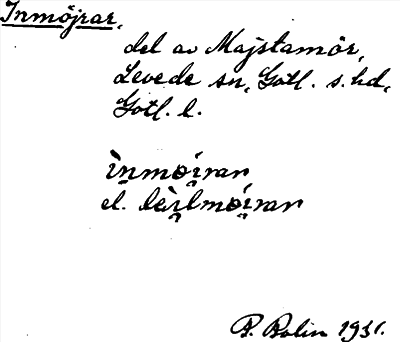 Inmöjrar,
del av Majstamör,
Levede sn, Gotl. s. hd,
Gotl. l.
ìnmøi̯rar
el. lèi̯lmøi̯rar
P. Bolin 1931.